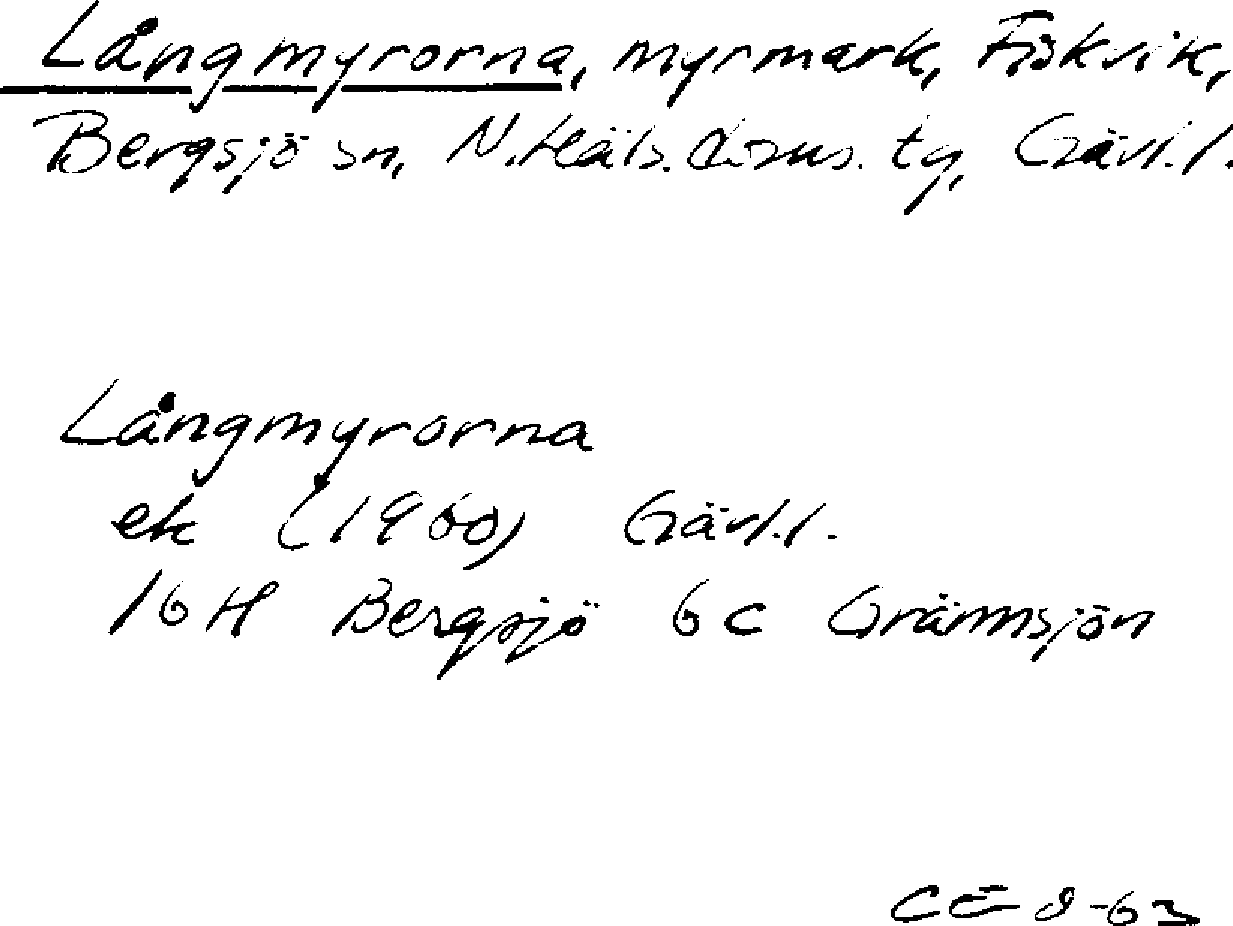 Långmyrorna, myrmark, Fiskvik,
Bergsjö sn, N. Häls. doms. tg, Gävl. l.
Långmyrorna
ek (1960) Gävl. l.
16H Bergsjö 6c Gränsjön
CE 8-63